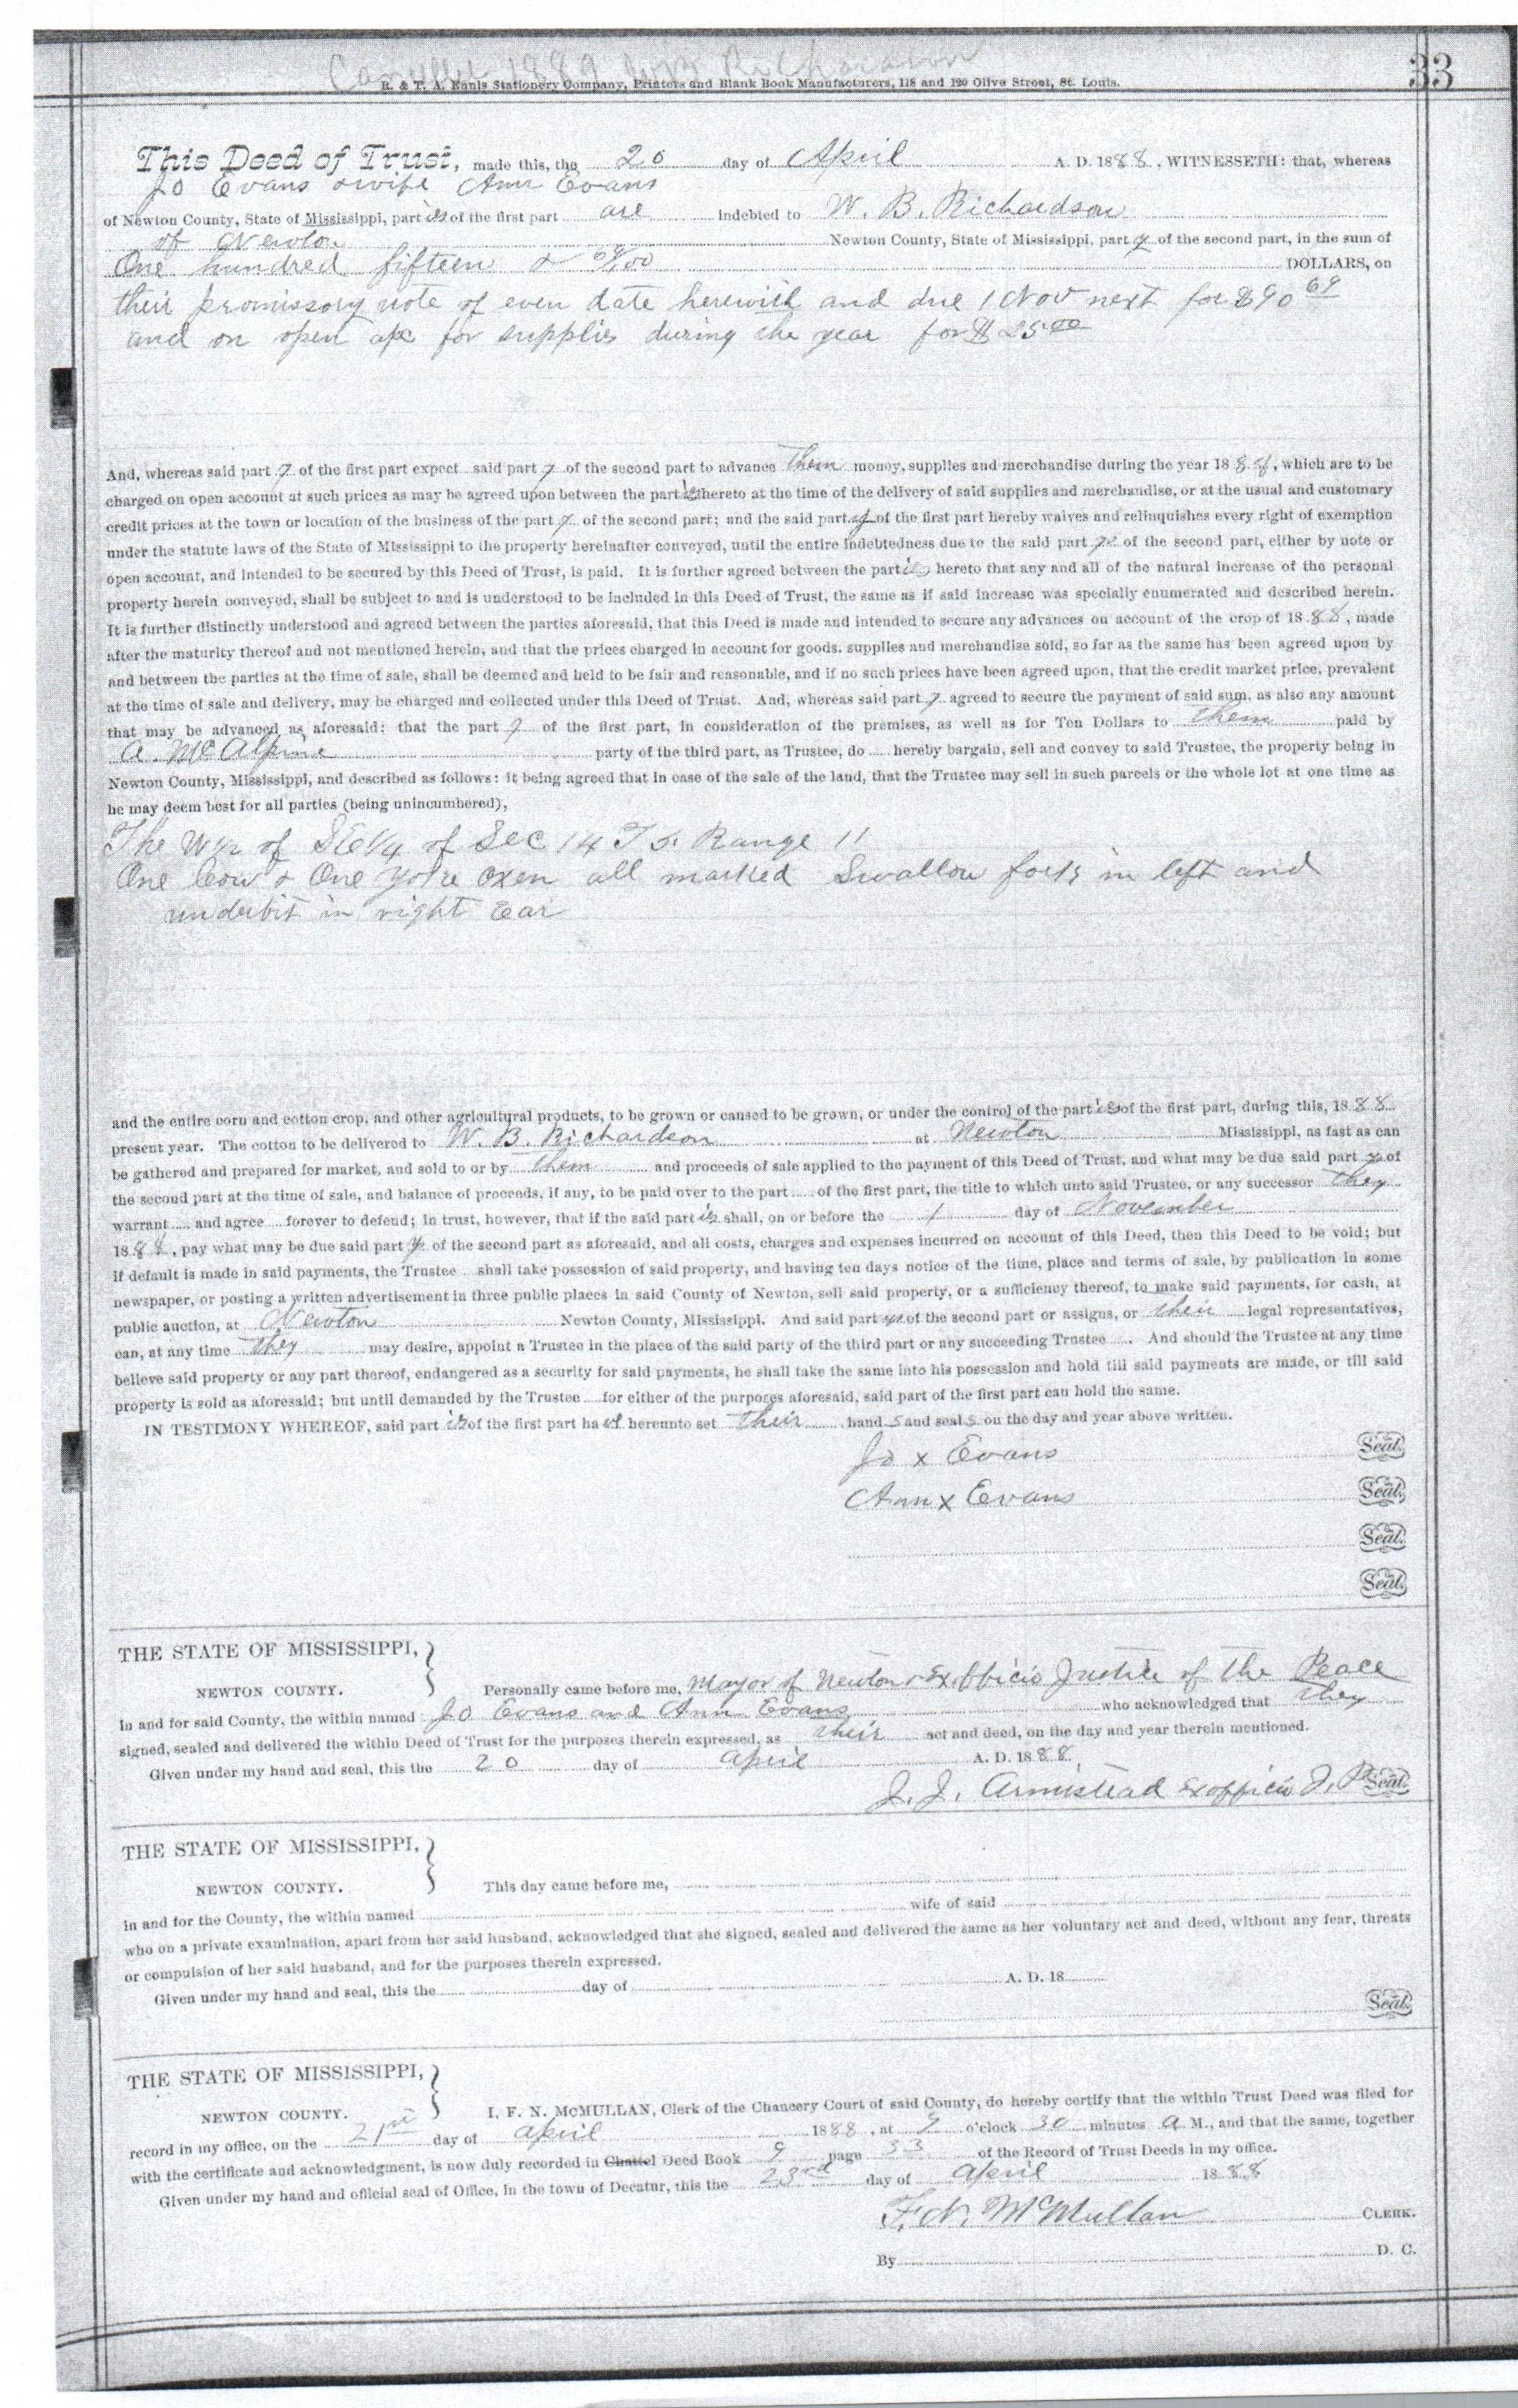 Cancelled 1889 W B Richardson
33
R. & T. A. Ennis Stationery Company, Printers and Blank Book Manufacturers, 118 and 120 Olive Street, St. Louis.
This Deed of Trust, made this, the 20 day of April A. D. 1888, WITNESSETH: that, whereas
Jo Evans & wife Ann Evans
of Newton County, State of Mississippi, parties of the first part are indebted to W. B. Richardson
of Newton Newton County, State of Mississippi, party of the second part, in the sum of
One hundred fifteen & 69/00 DOLLARS, on
their promissory note of even date herewith and due 1 Nov next for $90 69
and on open a/c for supplies during the year for $25 00
And, whereas said party of the first part expect said party of the second part to advance them money, supplies and merchandise during the year 1888, which are to be
charged on open account at such prices as may be agreed upon between the parties thereto at the time of the delivery of said supplies and merchandise, or at the usual and customary
credit prices at the town or location of the business of the party of the second part; and the said party of the first part hereby waives and relinquishes every right of exemption
under the statute laws of the State of Mississippi to the property hereinafter conveyed, until the entire indebtedness due to the said party of the second part, either by note or
open account, and intended to be secured by this Deed of Trust, is paid. It is further agreed between the parties hereto that any and all of the natural increase of the personal
property herein conveyed, shall be subject to and is understood to be included in this Deed of Trust, the same as if said increase was specially enumerated and described herein.
It is further distinctly understood and agreed between the parties aforesaid, that this Deed is made and intended to secure any advances on account of the crop of 1888, made
after the maturity thereof and not mentioned herein, and that the prices charged in account for goods, supplies and merchandise sold, so far as the same has been agreed upon by
and between the parties at the time of sale, shall be deemed and held to be fair and reasonable, and if no such prices have been agreed upon, that the credit market price, prevalent
at the time of sale and delivery, may be charged and collected under this Deed of Trust. And, whereas said party agreed to secure the payment of said sum, as also any amount
that may be advanced as aforesaid: that the party of the first part, in consideration of the premises, as well as for Ten Dollars to them paid by
A. McAlpine party of the third part, as Trustee, do hereby bargain, sell and convey to said Trustee, the property being in
Newton County, Mississippi, and described as follows: it being agreed that in case of the sale of the land, that the Trustee may sell in such parcels or the whole lot at one time as
he may deem best for all parties (being unincumbered),
The W1/2 of SE1/4 of Sec 14 T 5 Range 11
One Cow & One yoke oxen all marked Swallow fork in left and
underbit in right Ear
and the entire corn and cotton crop, and other agricultural products, to be grown or caused to be grown, or under the control of the parties of the first part, during this, 1888
present year. The cotton to be delivered to W. B. Richardson at Newton Mississippi, as fast as can
be gathered and prepared for market, and sold to or by them and proceeds of sale applied to the payment of this Deed of Trust, and what may be due said party of
the second part at the time of sale, and balance of proceeds, if any, to be paid over to the part of the first part, the title to which unto said Trustee, or any successor they
warrant and agree forever to defend; in trust, however, that if the said parties shall, on or before the 1 day of November
1888, pay what may be due said party of the second part as aforesaid, and all costs, charges and expenses incurred on account of this Deed, then this Deed to be void; but
if default is made in said payments, the Trustee shall take possession of said property, and having ten days notice of the time, place and terms of sale, by publication in some
newspaper, or posting a written advertisement in three public places in said County of Newton, sell said property, or a sufficiency thereof, to make said payments, for cash, at
public auction, at Newton Newton County, Mississippi. And said party of the second part or assigns, or their legal representatives,
can, at any time they may desire, appoint a Trustee in the place of the said party of the third part or any succeeding Trustee. And should the Trustee at any time
believe said property or any part thereof, endangered as a security for said payments, he shall take the same into his possession and hold till said payments are made, or till said
property is sold as aforesaid; but until demanded by the Trustee for either of the purposes aforesaid, said part of the first part can hold the same.
IN TESTIMONY WHEREOF, said parties of the first part have hereunto set their hands and seals on the day and year above written.
Jo x Evans Seal.
Ann x Evans Seal.
Seal.
Seal.
THE STATE OF MISSISSIPPI,
NEWTON COUNTY. Personally came before me, Mayor of Newton & Ex officio Justice of the Peace
in and for said County, the within named Jo Evans and Ann Evans who acknowledged that they
signed, sealed and delivered the within Deed of Trust for the purposes therein expressed, as their act and deed, on the day and year therein mentioned.
Given under my hand and seal, this the 20 day of April A. D. 1888.
J. J. Armistead Exofficio J. P. Seal.
THE STATE OF MISSISSIPPI,
NEWTON COUNTY. This day came before me,
in and for the County, the within named wife of said
who on a private examination, apart from her said husband, acknowledged that she signed, sealed and delivered the same as her voluntary act and deed, without any fear, threats
or compulsion of her said husband, and for the purposes therein expressed.
Given under my hand and seal, this the day of A. D. 18
Seal.
THE STATE OF MISSISSIPPI,
NEWTON COUNTY. I, F. N. McMULLAN, Clerk of the Chancery Court of said County, do hereby certify that the within Trust Deed was filed for
record in my office, on the 21st day of April 1888, at 9 o'clock 30 minutes A M., and that the same, together
with the certificate and acknowledgment, is now duly recorded in Chattel Deed Book 9 page 33 of the Record of Trust Deeds in my office.
Given under my hand and official seal of Office, in the town of Decatur, this the 23rd day of April 1888
F. N. McMullan CLERK.
By D. C.